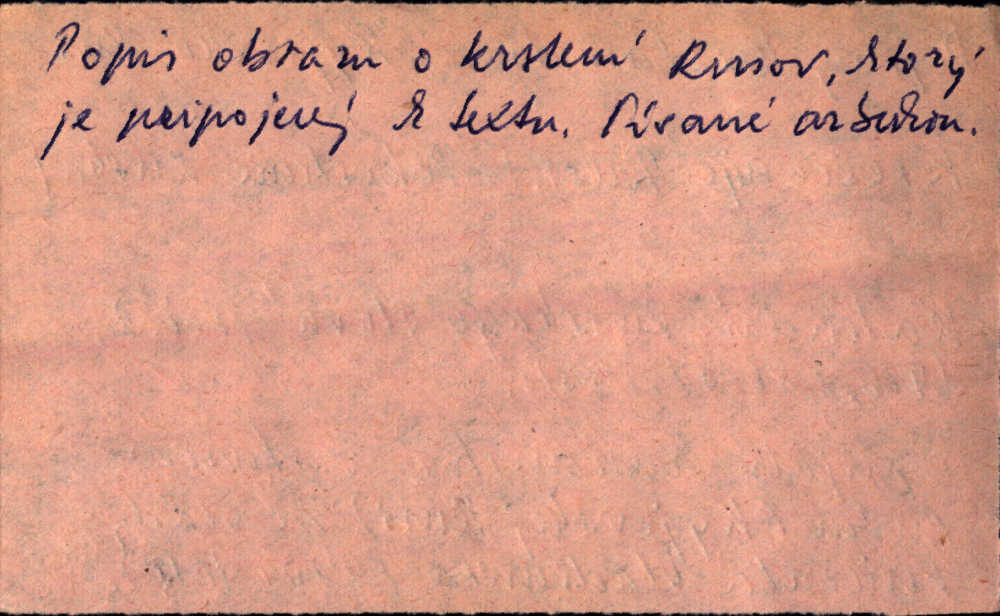 Popis obrazu o krstení Rusov, ktorý
je pripojený k textu. Písané azbukou.